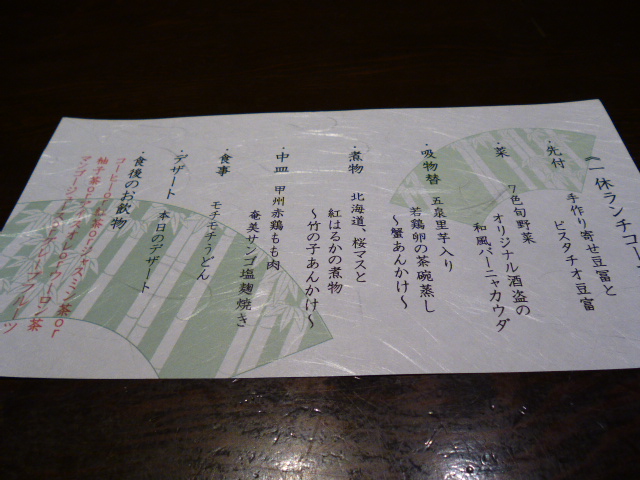 《一休ランチコー
・先付
手作り寄せ豆冨と
ピスタチオ豆富
・菜
7色旬野菜
オリジナル酒盗の
和風バーニャカウダ
・吸物替
五泉里芋入り
若鶏卵の茶碗蒸し
～蟹あんかけ～
・煮物
北海道、桜マスと
紅はるかの煮物
～竹の子あんかけ～
・中皿
甲州赤鶏もも肉
奄美サンゴ塩麹焼き
・食事
モチモチうどん
・デザート
本日のデザート
・食後のお飲物
コーヒーor紅茶orジャスミン茶or
柚子茶or
orウーロン茶
マンゴージュースorグレープフルーツ